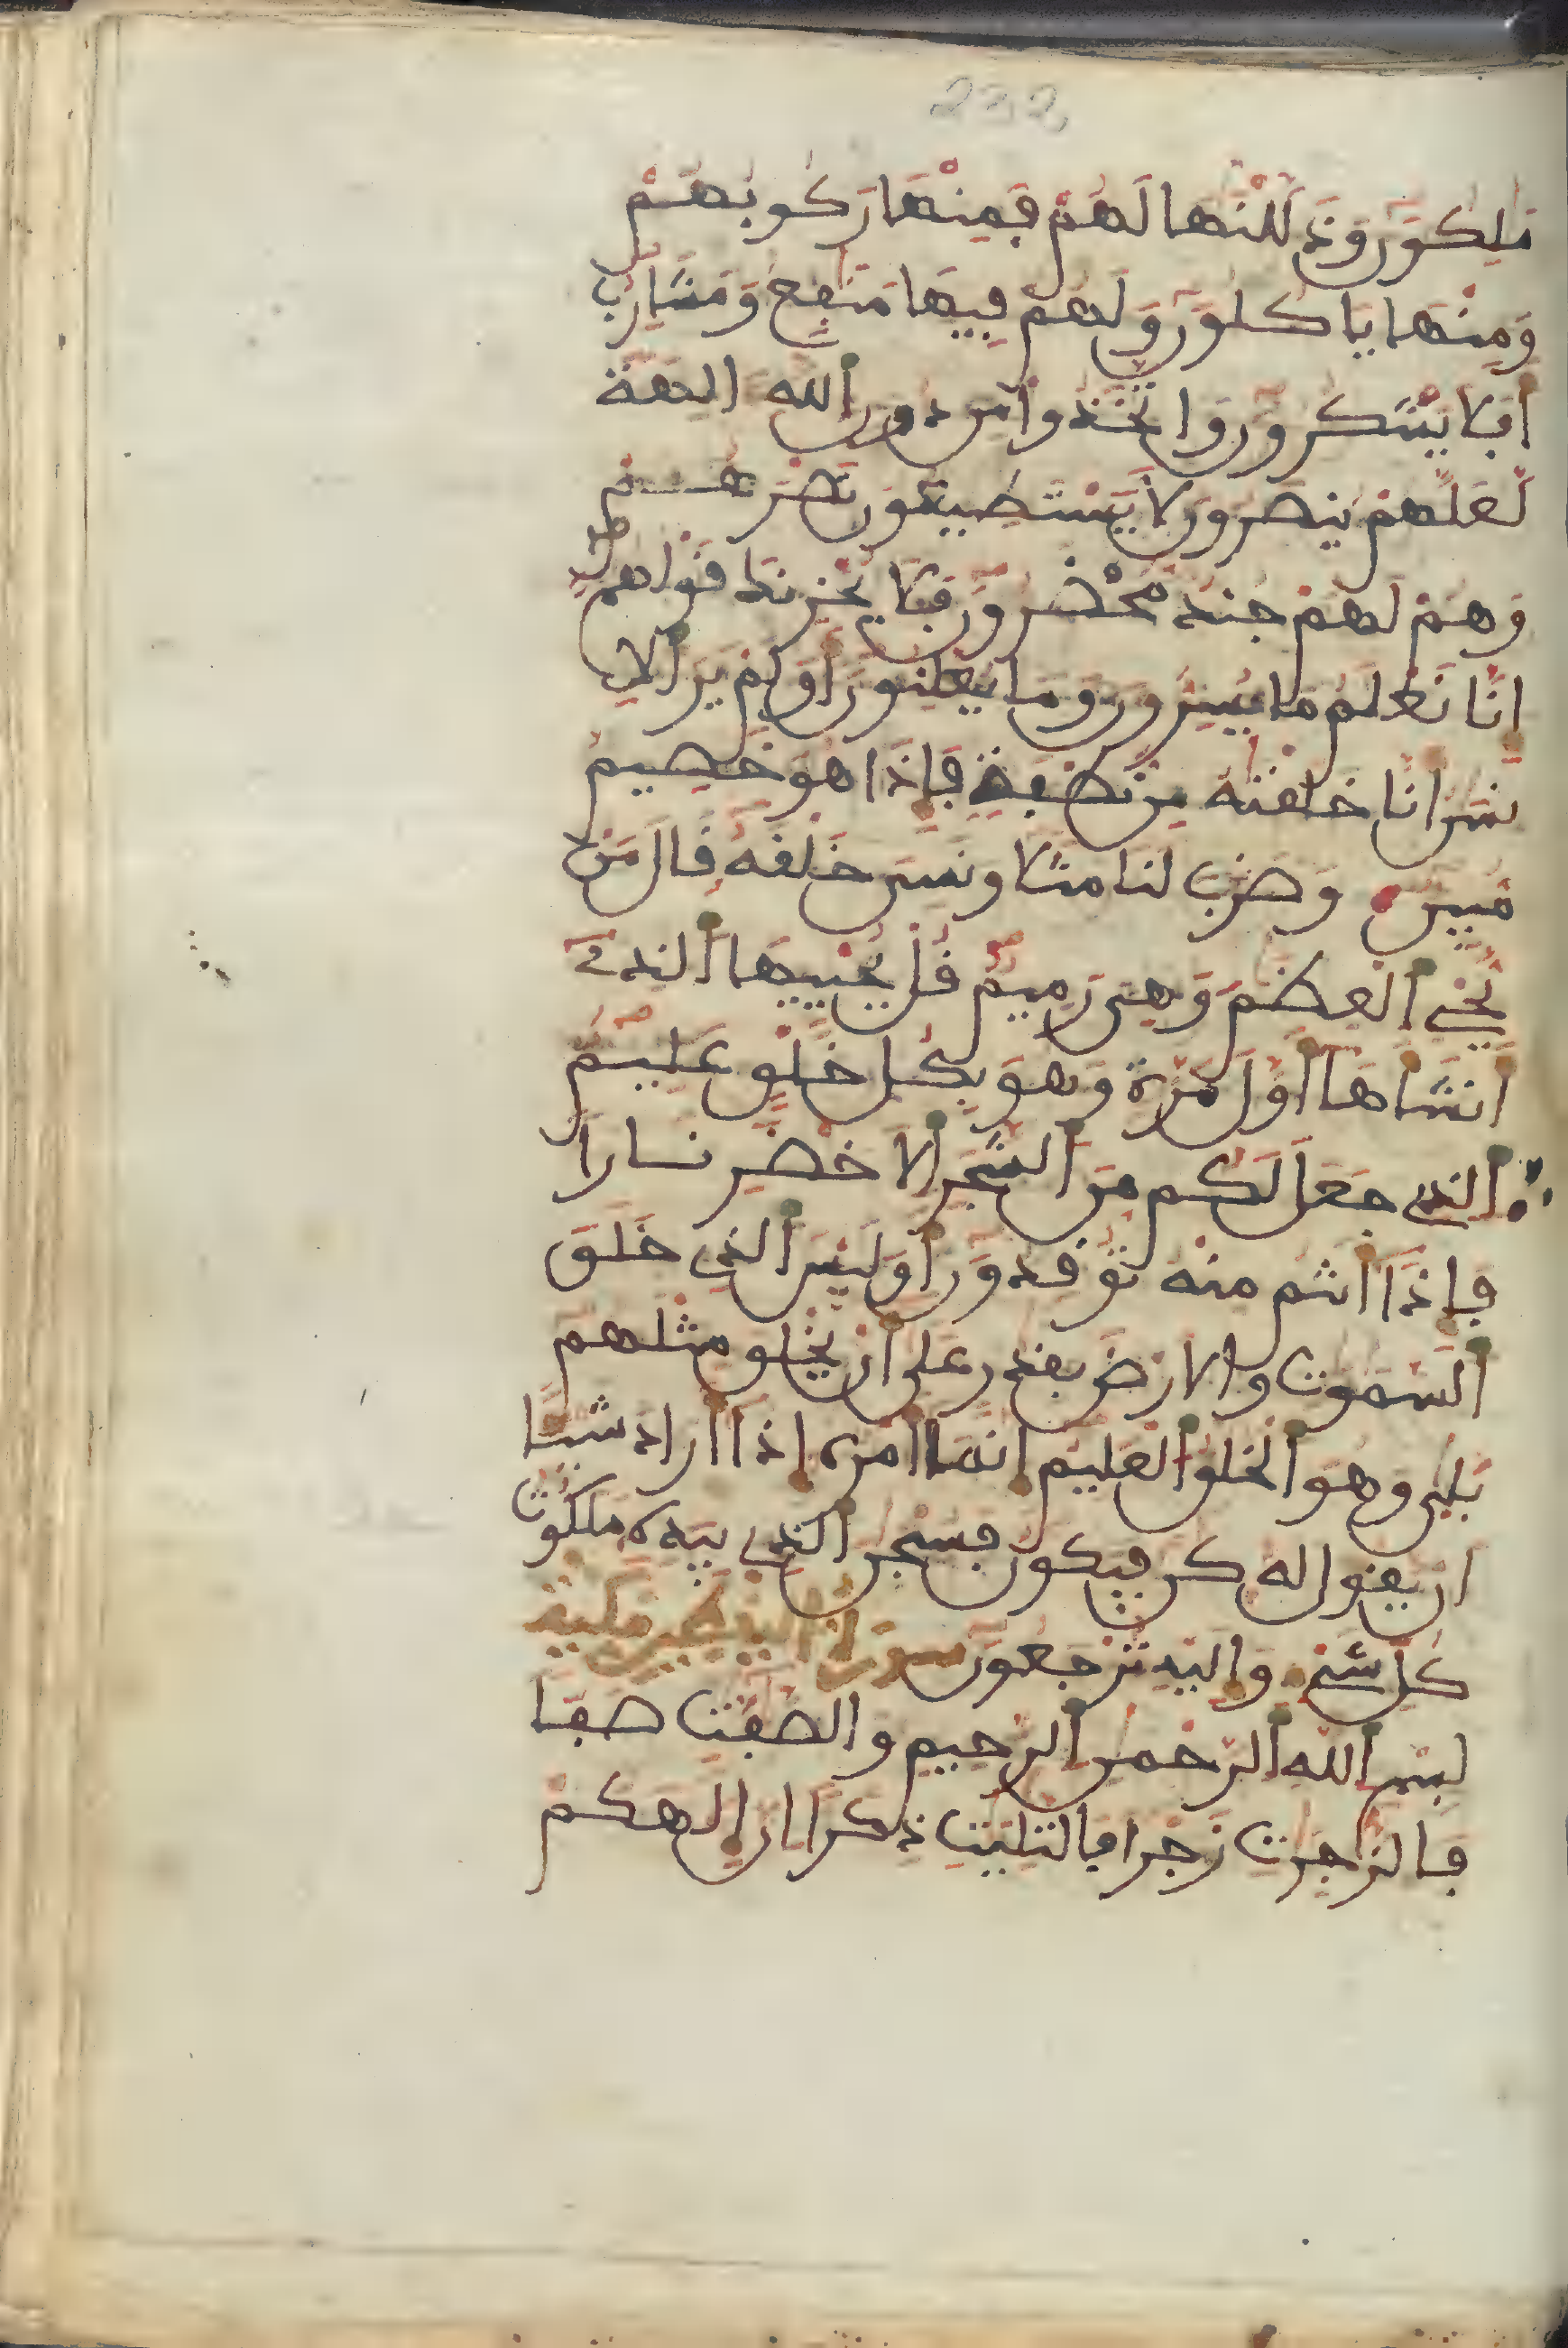 232
مَلِكُورَ وَذَلَّلْنَٰهَا لَهُمْ فَمِنْهَا رَكُوبُهُمْ
وَمِنْهَا يَاكُلُورَ وَلَهُمْ فِيهَا مَنَٰفِعُ وَمَشَارِبُ
أَفَلَا يَشْكُرُورَ وَاتَّخَذُوا مِن دُورِ اللَّهِ ءَالِهَةً
لَّعَلَّهُمْ يُنصَرُورَ لَا يَسْتَطِيعُورَ نَصْرَهُمْ
وَهُمْ لَهُمْ جُندٌ مُّحْضَرُورَ فَلَا يُحْزِنكَ قَوْلُهُمْ
إِنَّا نَعْلَمُ مَا يُسِرُّورَ وَمَا يُعْلِنُورَ أَوَلَمْ يَرَ الِا
نسَٰنُ أَنَّا خَلَقْنَٰهُ مِن نُّطْفَةٍ فَإِذَا هُوَ خَصِيمٌ
مُّبِينٌ وَضَرَبَ لَنَا مَثَلًا وَنَسِيَ خَلْقَهُ قَالَ مَنْ
يُّحْيِ الْعِظَٰمَ وَهِيَ رَمِيمٌ قُلْ يُحْيِيهَا الَّذِے
أَنشَأَهَا أَوَّلَ مَرَّةٍ وَهُوَ بِكُلِّ خَلْقٍ عَلِيمٌ
الَّذِي جَعَلَ لَكُم مِّنَ الشَّجَرِ الَاخْضَرِ نَارًا
فَإِذَا أَنتُم مِّنْهُ تُوقِدُورَ أَوَلَيْسَ الَّذِي خَلَقَ
السَّمَٰوَٰتِ وَالَارْضَ بِقَٰدِرٍ عَلَىٰ أَنْ يَّخْلُقَ مِثْلَهُم
بَلَىٰ وَهُوَ الْخَلَّٰقُ الْعَلِيمُ إِنَّمَا أَمْرُهُ إِذَا أَرَادَ شَيْـًٔا
أَنْ يَّقُولَ لَهُ كُن فَيَكُونُ فَسُبْحَٰنَ الَّذِي بِيَدِهِ مَلَكُوتُ
كُلِّ شَيْءٍ وَإِلَيْهِ تُرْجَعُورَ
بِسْمِ اللَّهِ الرَّحْمَٰنِ الرَّحِيمِ وَالصَّٰفَّٰتِ صَفًّا
فَالزَّٰجِرَٰتِ زَجْرًا فَالتَّٰلِيَٰتِ ذِكْرًا إِنَّ إِلَٰهَكُمْ